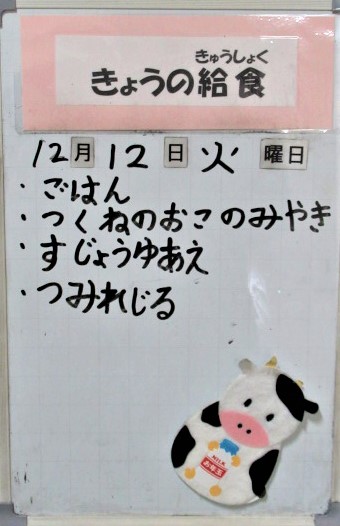 きゅうしょく
きょうの給食
12月12日火曜日
・ごはん
・つくねのおこのみやき
・すじょうゆあえ
・つみれじる
MILK
お年玉